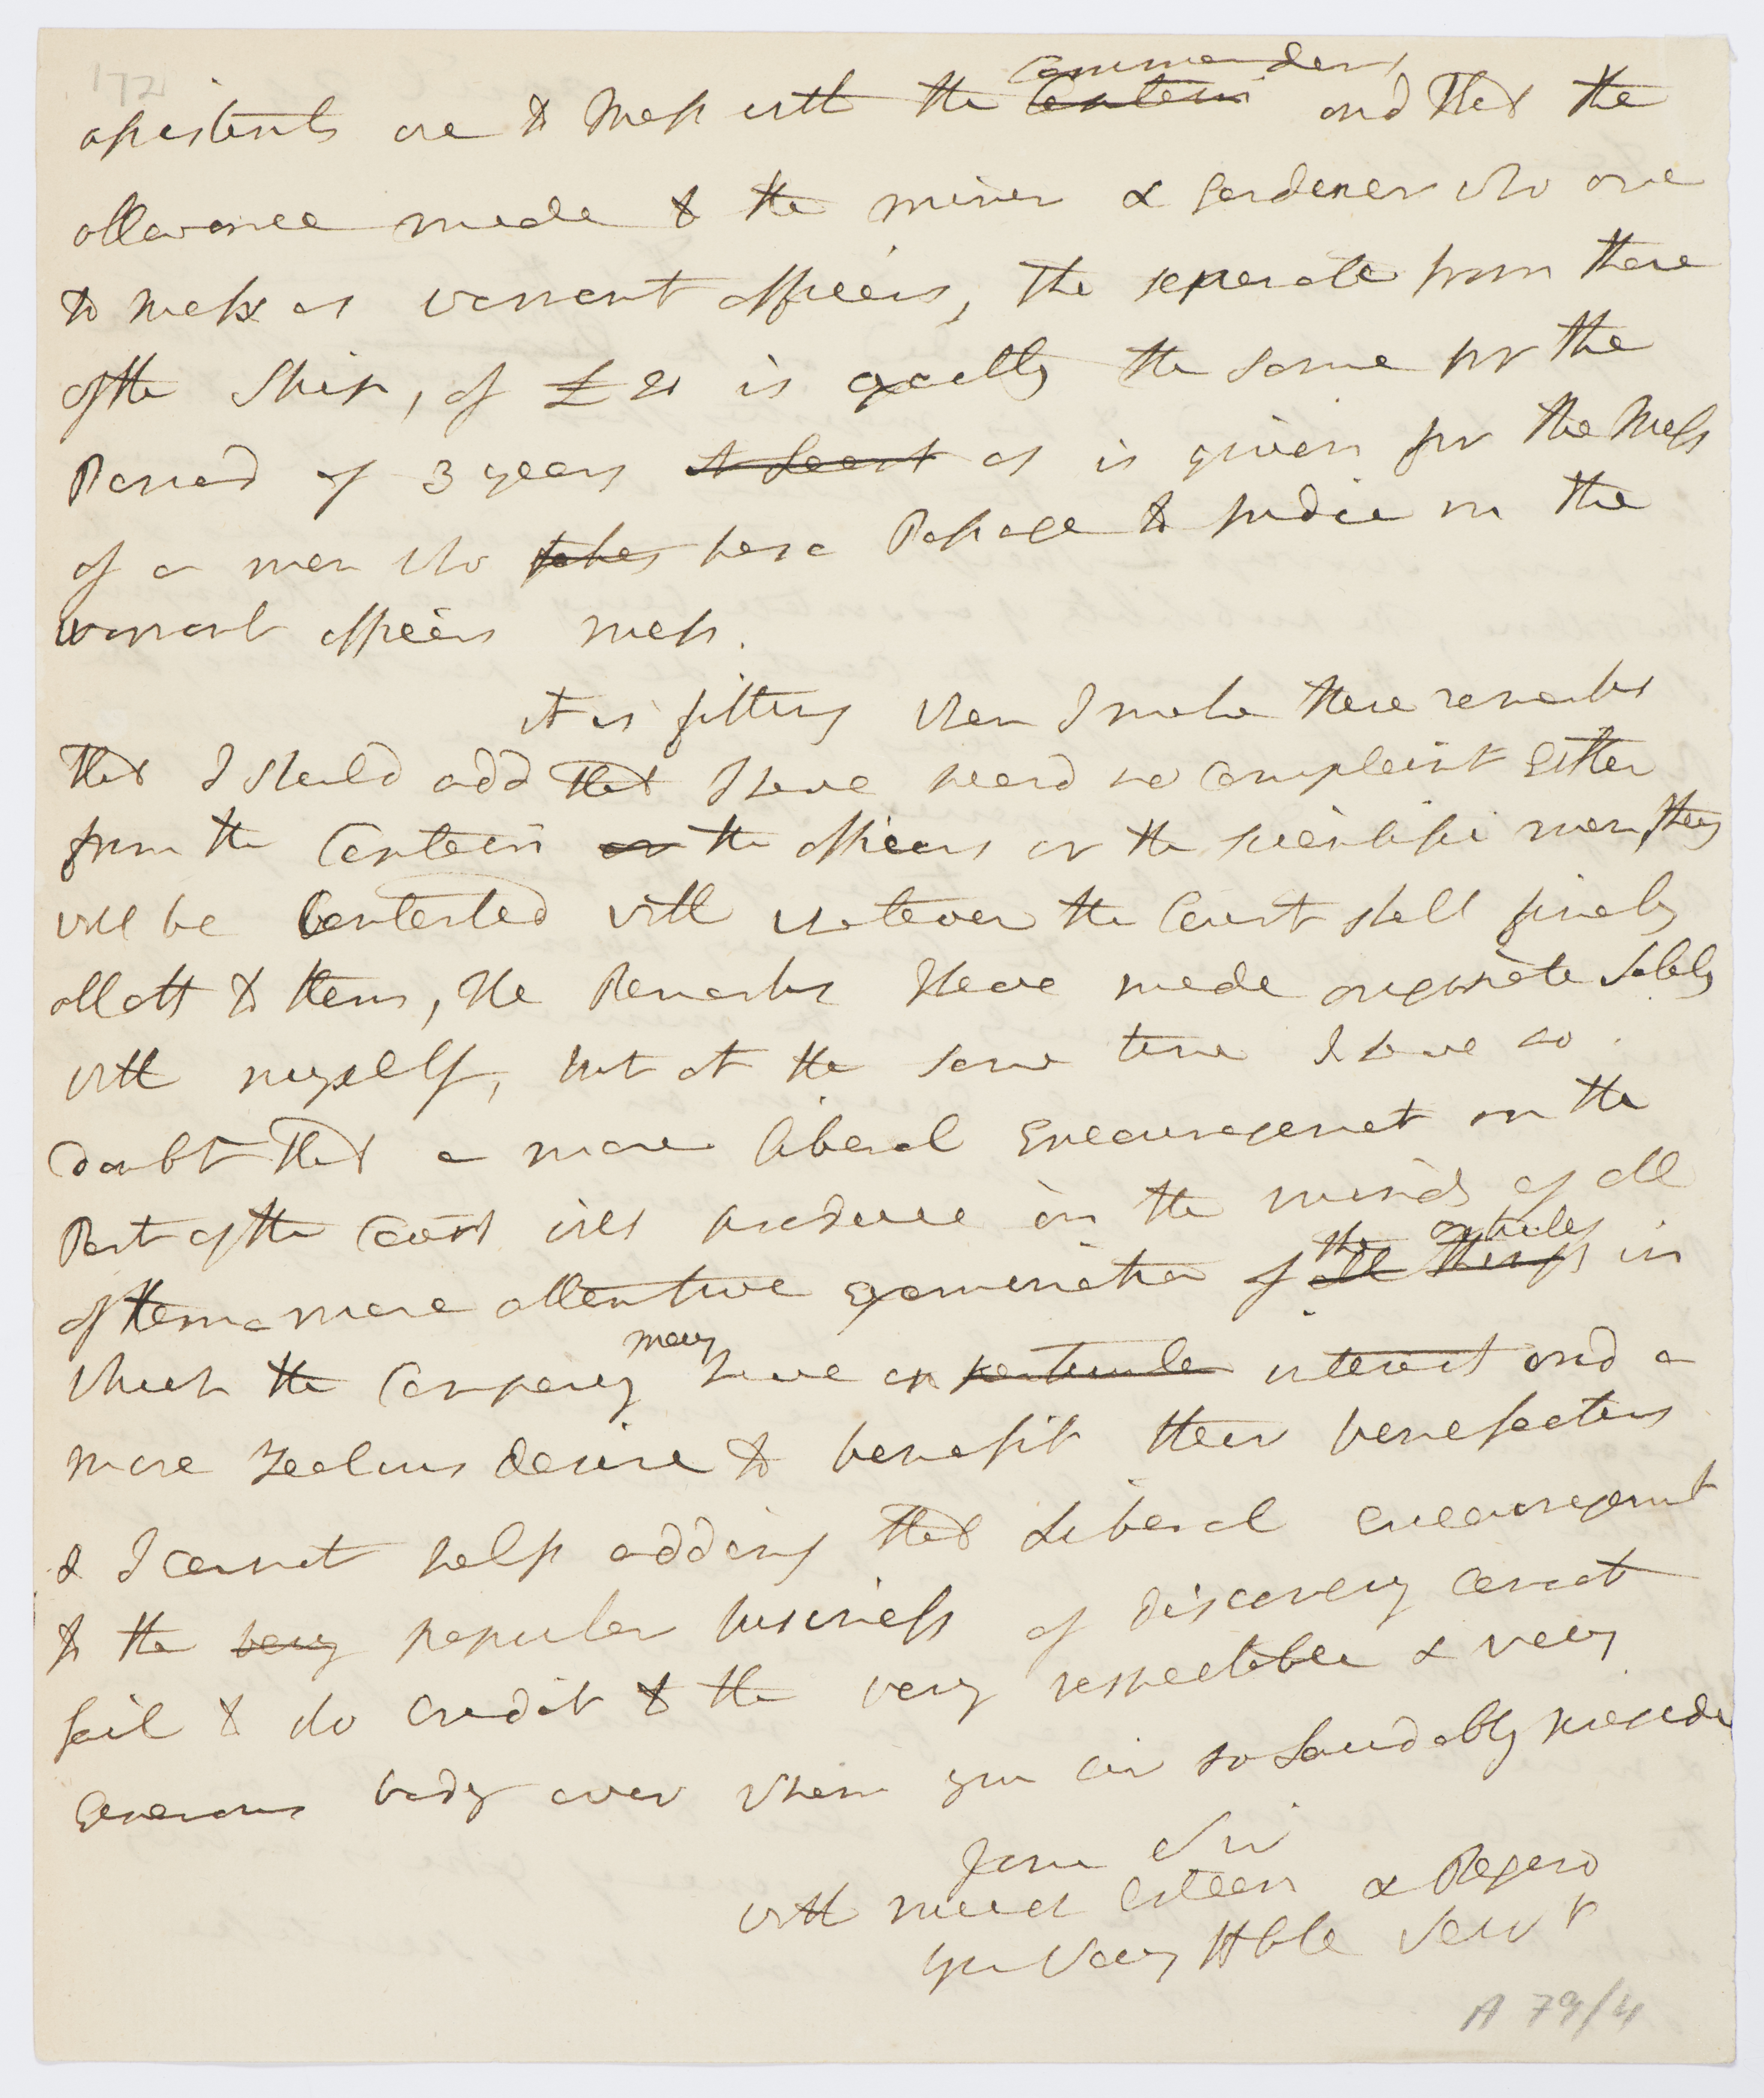 172
Commanders
assistants are to Mess with the Captain and that the
allowance made to the miner & Gardener who are
to Mess as warrant officers, tho seperate from those
of the Ship, of £ is exactly the same for the
Period of 3 years at Least as is given for the Mess
of a man who takes has a Passage to India in the
warrant officers mess.
it is fitting when I make these remarks
that I should add that I have heard no Complaint Either
from the Captain or the officers or the scientific men, they
will be Contented with whatever the Court shall finely
allott to them, the Remarks I have made originate Solely
with myself, but at the same time I have no
doubt that a more liberal Encouragement on the
Part of the Court will produce in the minds of all
the articles
of them a more attentive Examination of all things in
may
which the Company have an particular interest and a
more Zealous desire to benefit their benefactors
& I cannot help adding that Liberal encouragement
to the very popular business of discovery cannot
fail to do credit to the very respectable & very
Generous body over whom you Sir so Laudably preside
I am Sir
with much Esteem & Regard
yr Very Hble Servt
A 79/4